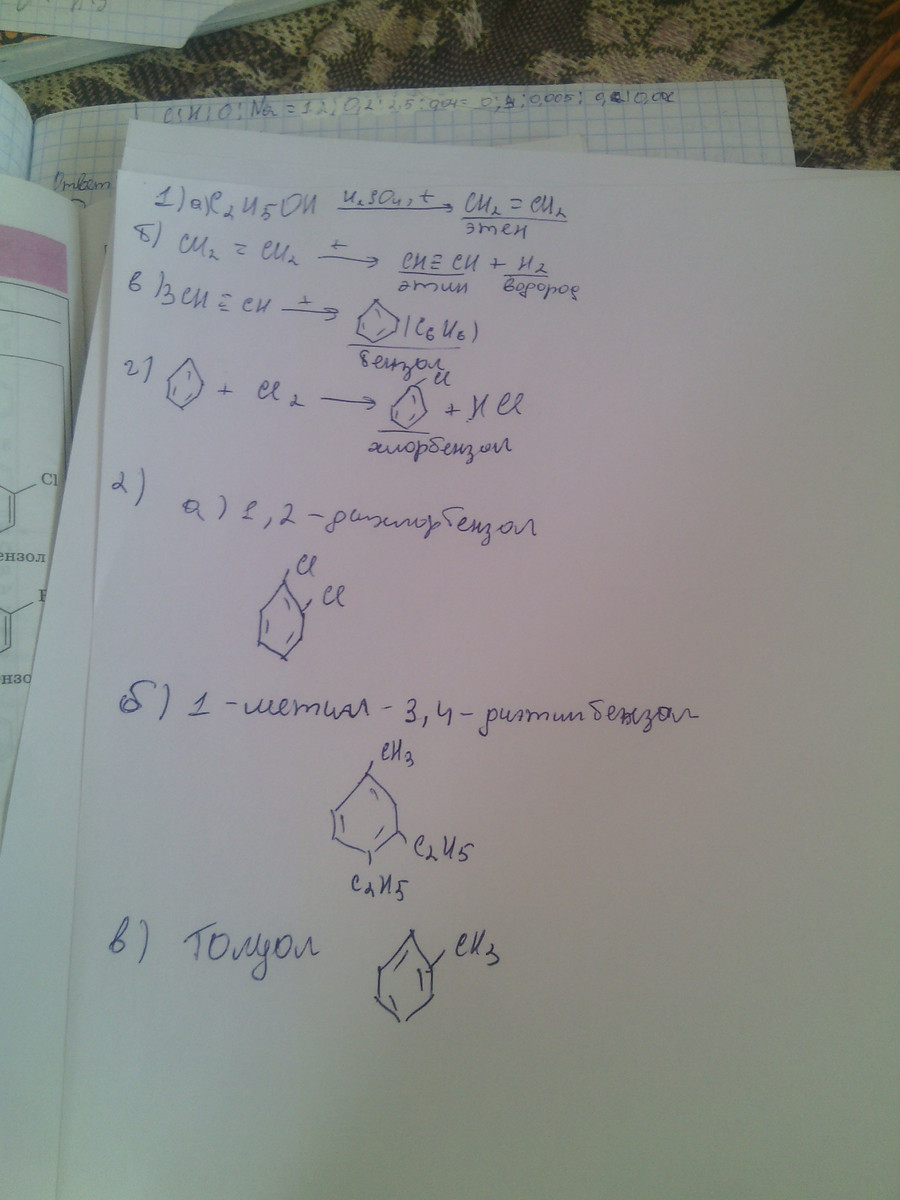 Ответ
1) а) C2H5OH H2SO4, t → CH2 = CH2
этен
б) CH2 = CH2 t → CH ≡ CH + H2
этин водород
в) 3CH ≡ CH t → (C6H6)
бензол
г) + Cl2 → Cl + HCl
хлорбензол
2)
а) 1,2-дихлорбензол
Cl
Cl
б) 1-метил-3,4-диэтилбензол
CH3
C2H5
C2H5
в) Толуол CH3
Cl
ензол